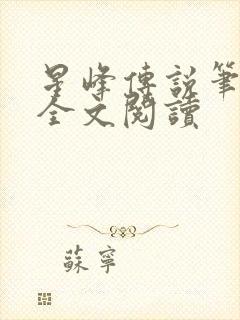 星峰傳說筆
全文閱讀
蘇寧